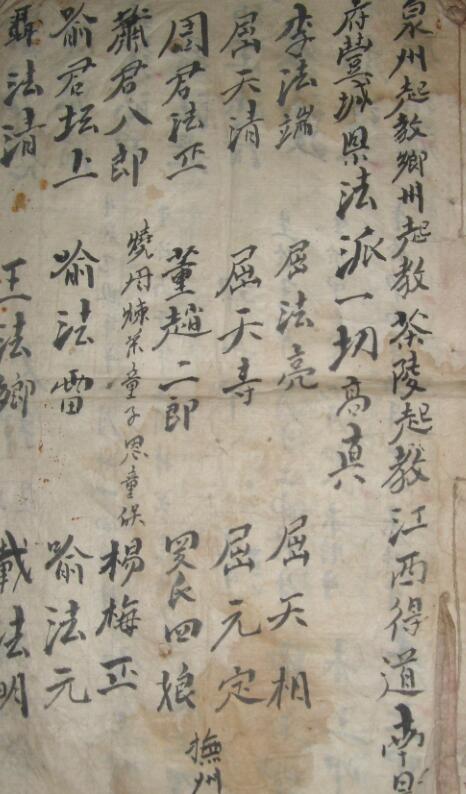 泉州起教鄉州起教茶陵起教江西得道南昌
府豐城県法派一切高真
李法端 屈法亮 屈天相
屈天清 屈天寿 屈元定
周君法丕 董趙二郎 罗氏四娘 撫州
蕭君八郎 燒丹煉茶童子恩童 楊梅丕
喻君坛上 喻法雷 喻法元
聶法清 王法鄉 戴法明